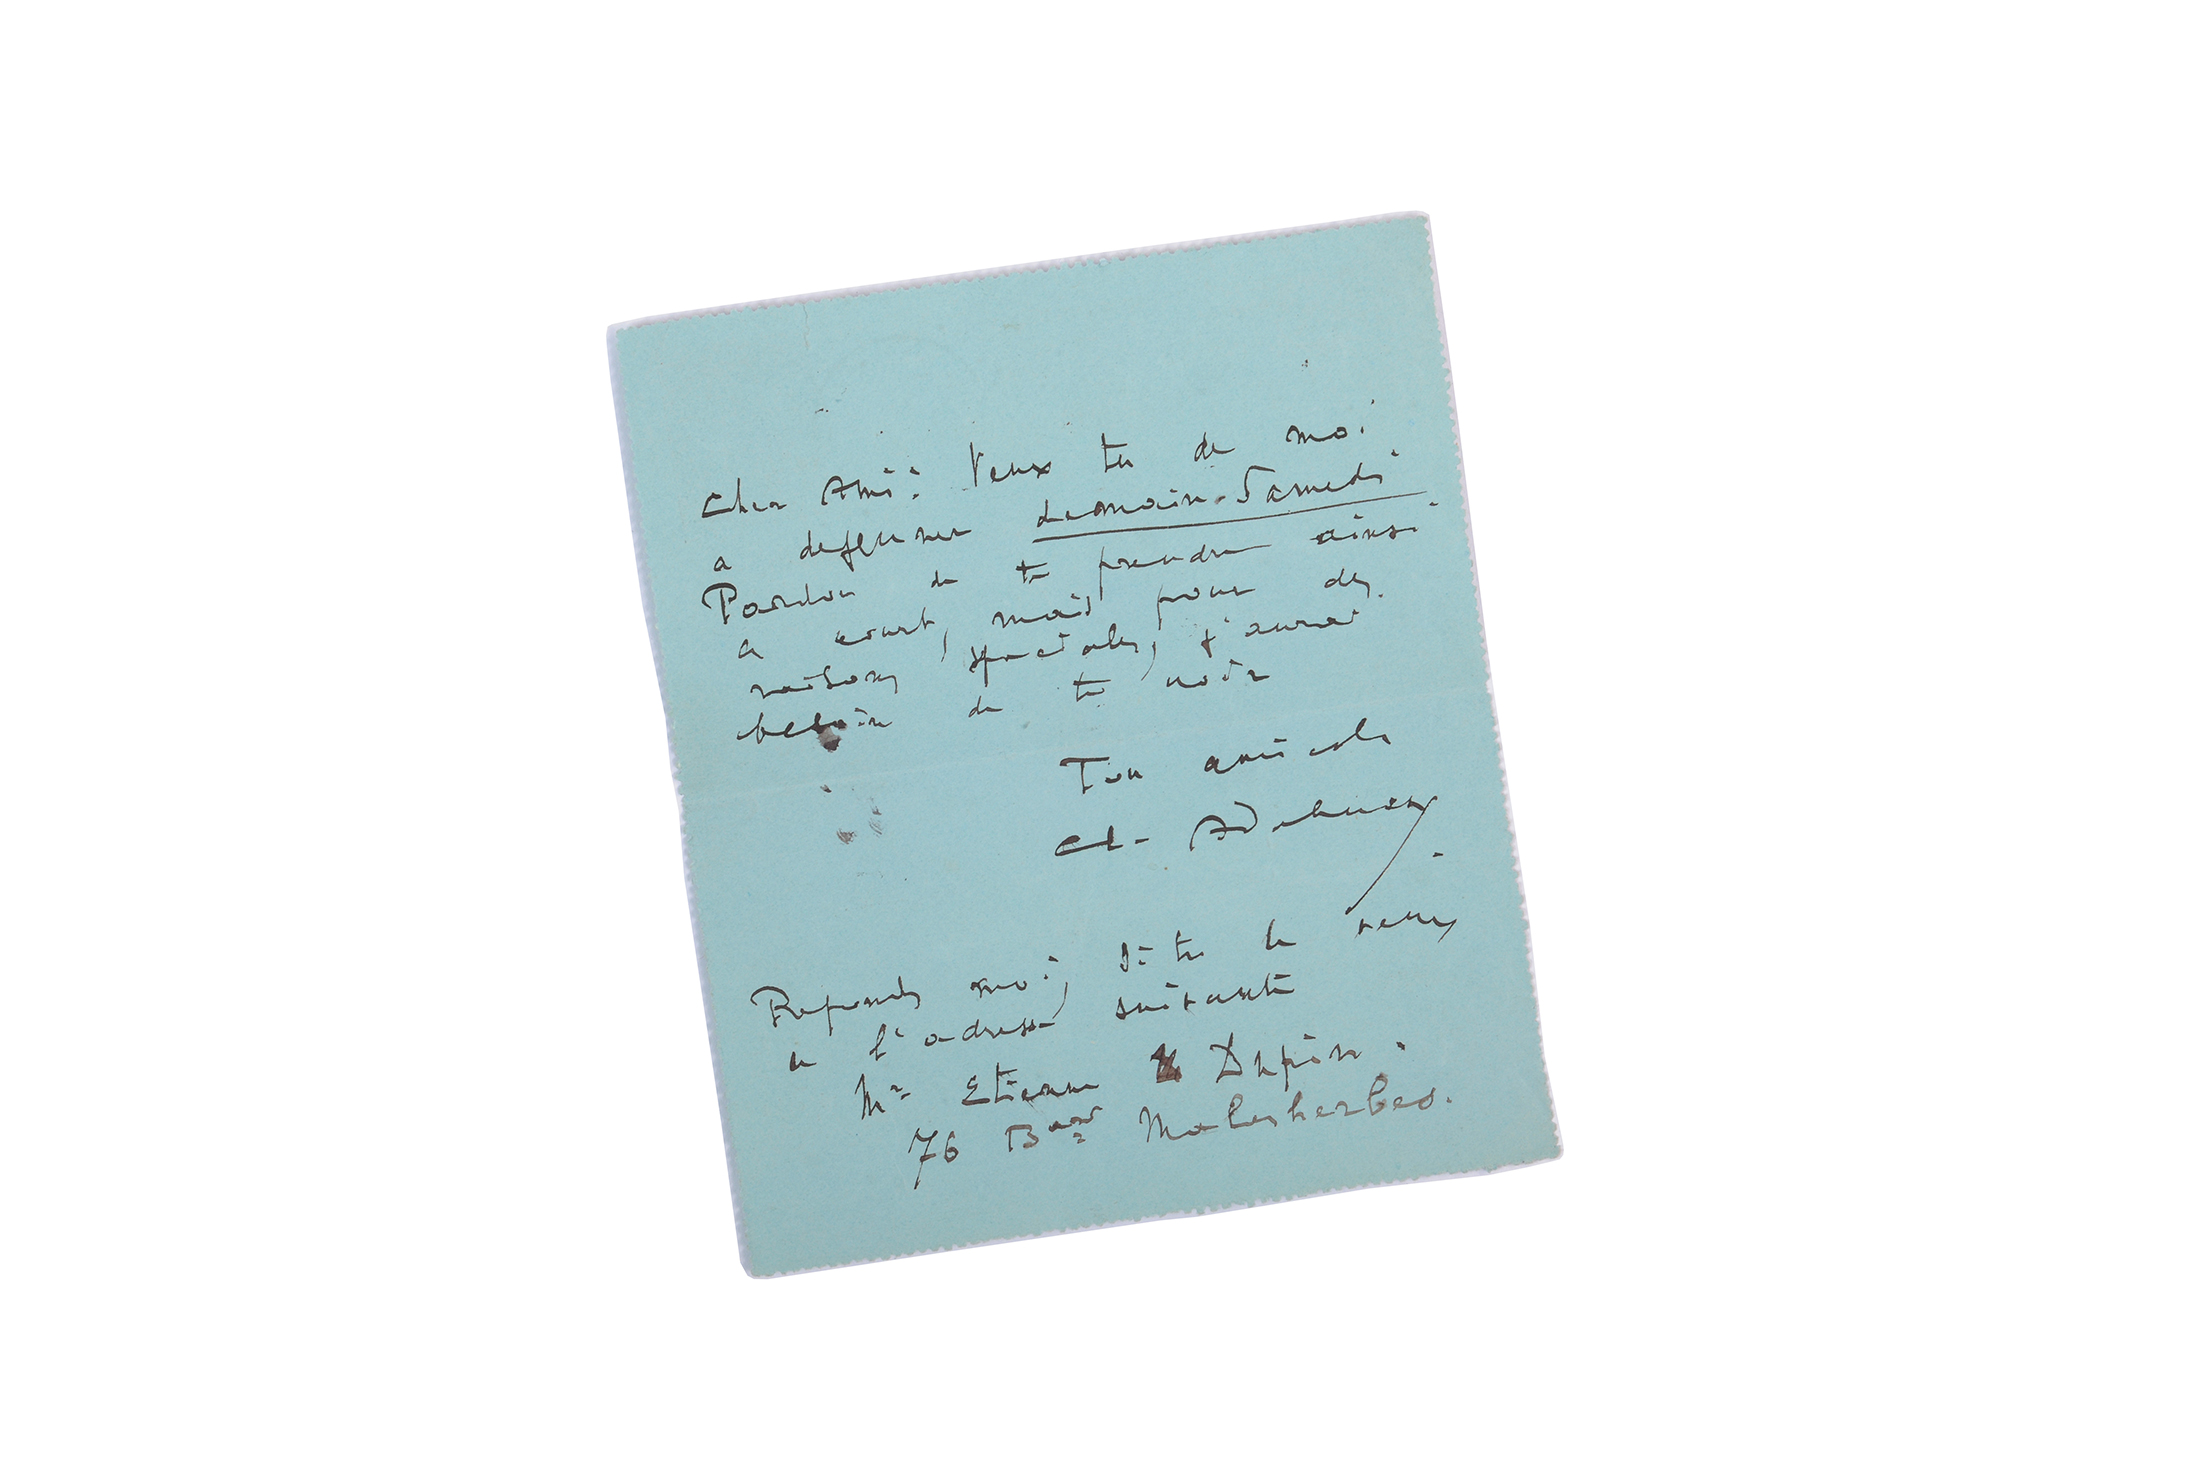 Cher Ami: Veux tu de moi
a dejeuner demain-Samedi
Pardon de te prendre ainsi
a court, mais pour des
raisons speciales, j'aurai
besoin de te voir
Ton amicale
Ch- ADebussy
Reponds moi, si tu le veux
a l'adresse suivante
Mr Etienne Dupin.
76 Bard Malesherbes.